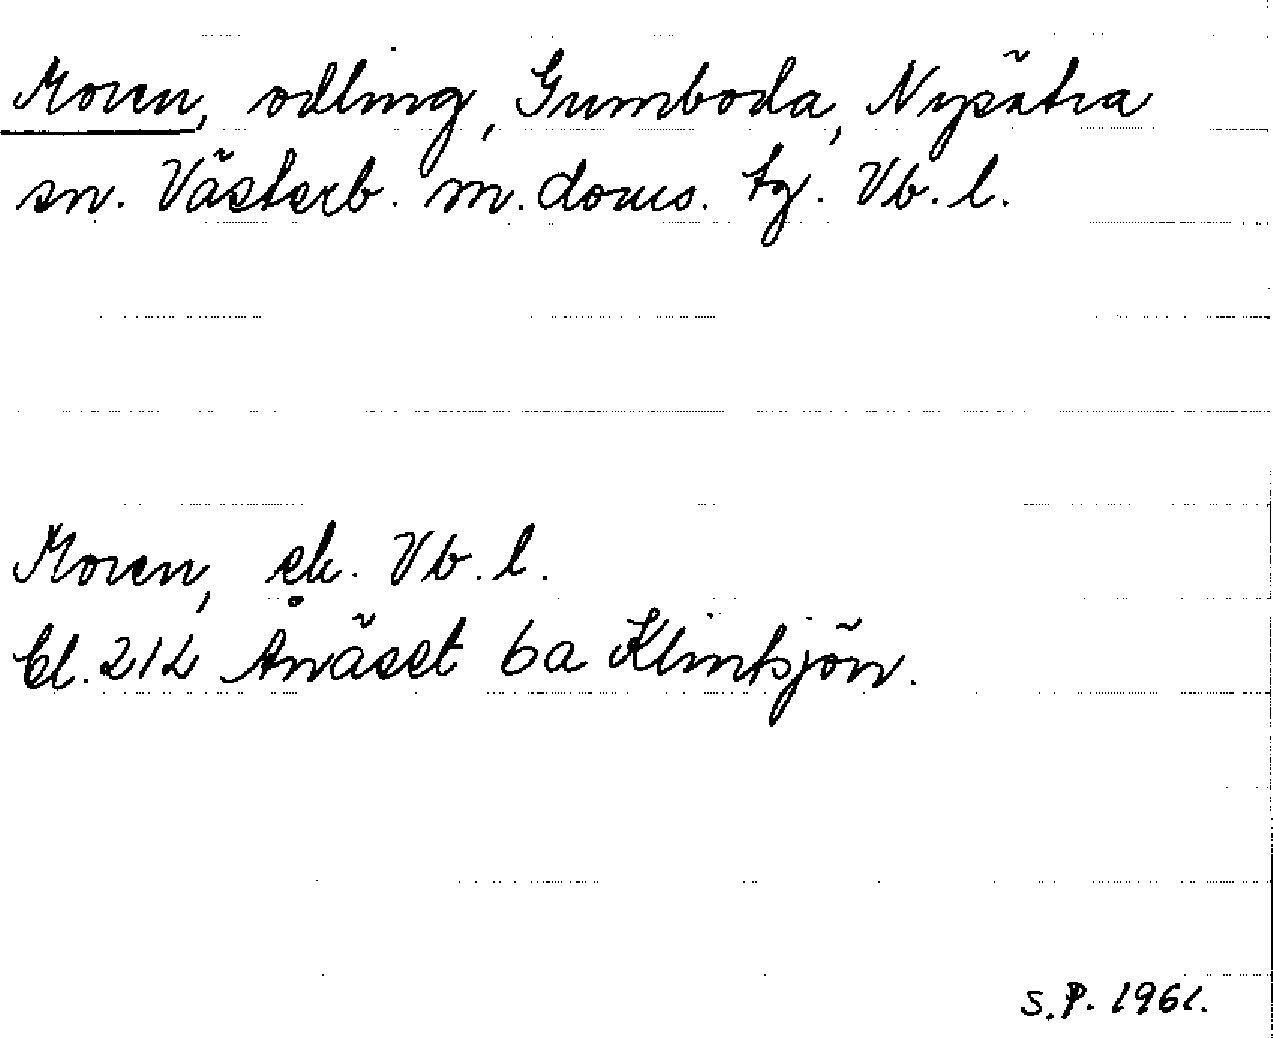 Moren, odling, Gumboda, Nysätra
sn. Västerb. m. doms. tg. Vb. l.
Moren, ek. Vb. l.
bl. 212 Ånäset 6a Klintsjön.
S.P. 1961.